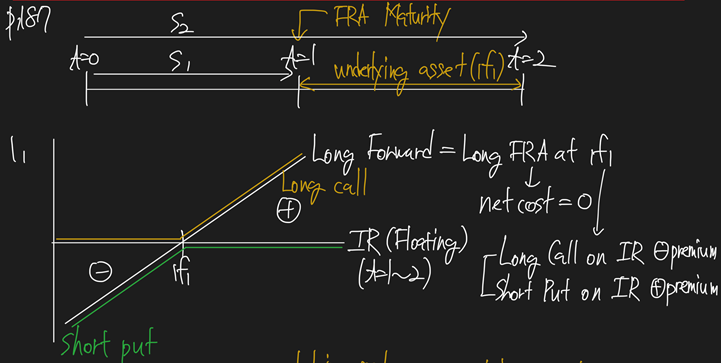 p187
FRA Maturity
S2
t=0 S1 t=1 underlying asset(1f1) t=2
l1
Long Forward = Long FRA at 1f1
Long call
net cost = 0
⊕
IR (Floating)
(t=1~2)
⊖
1f1
Long Call on IR ⊖premium
Short Put on IR ⊕premium
Short put